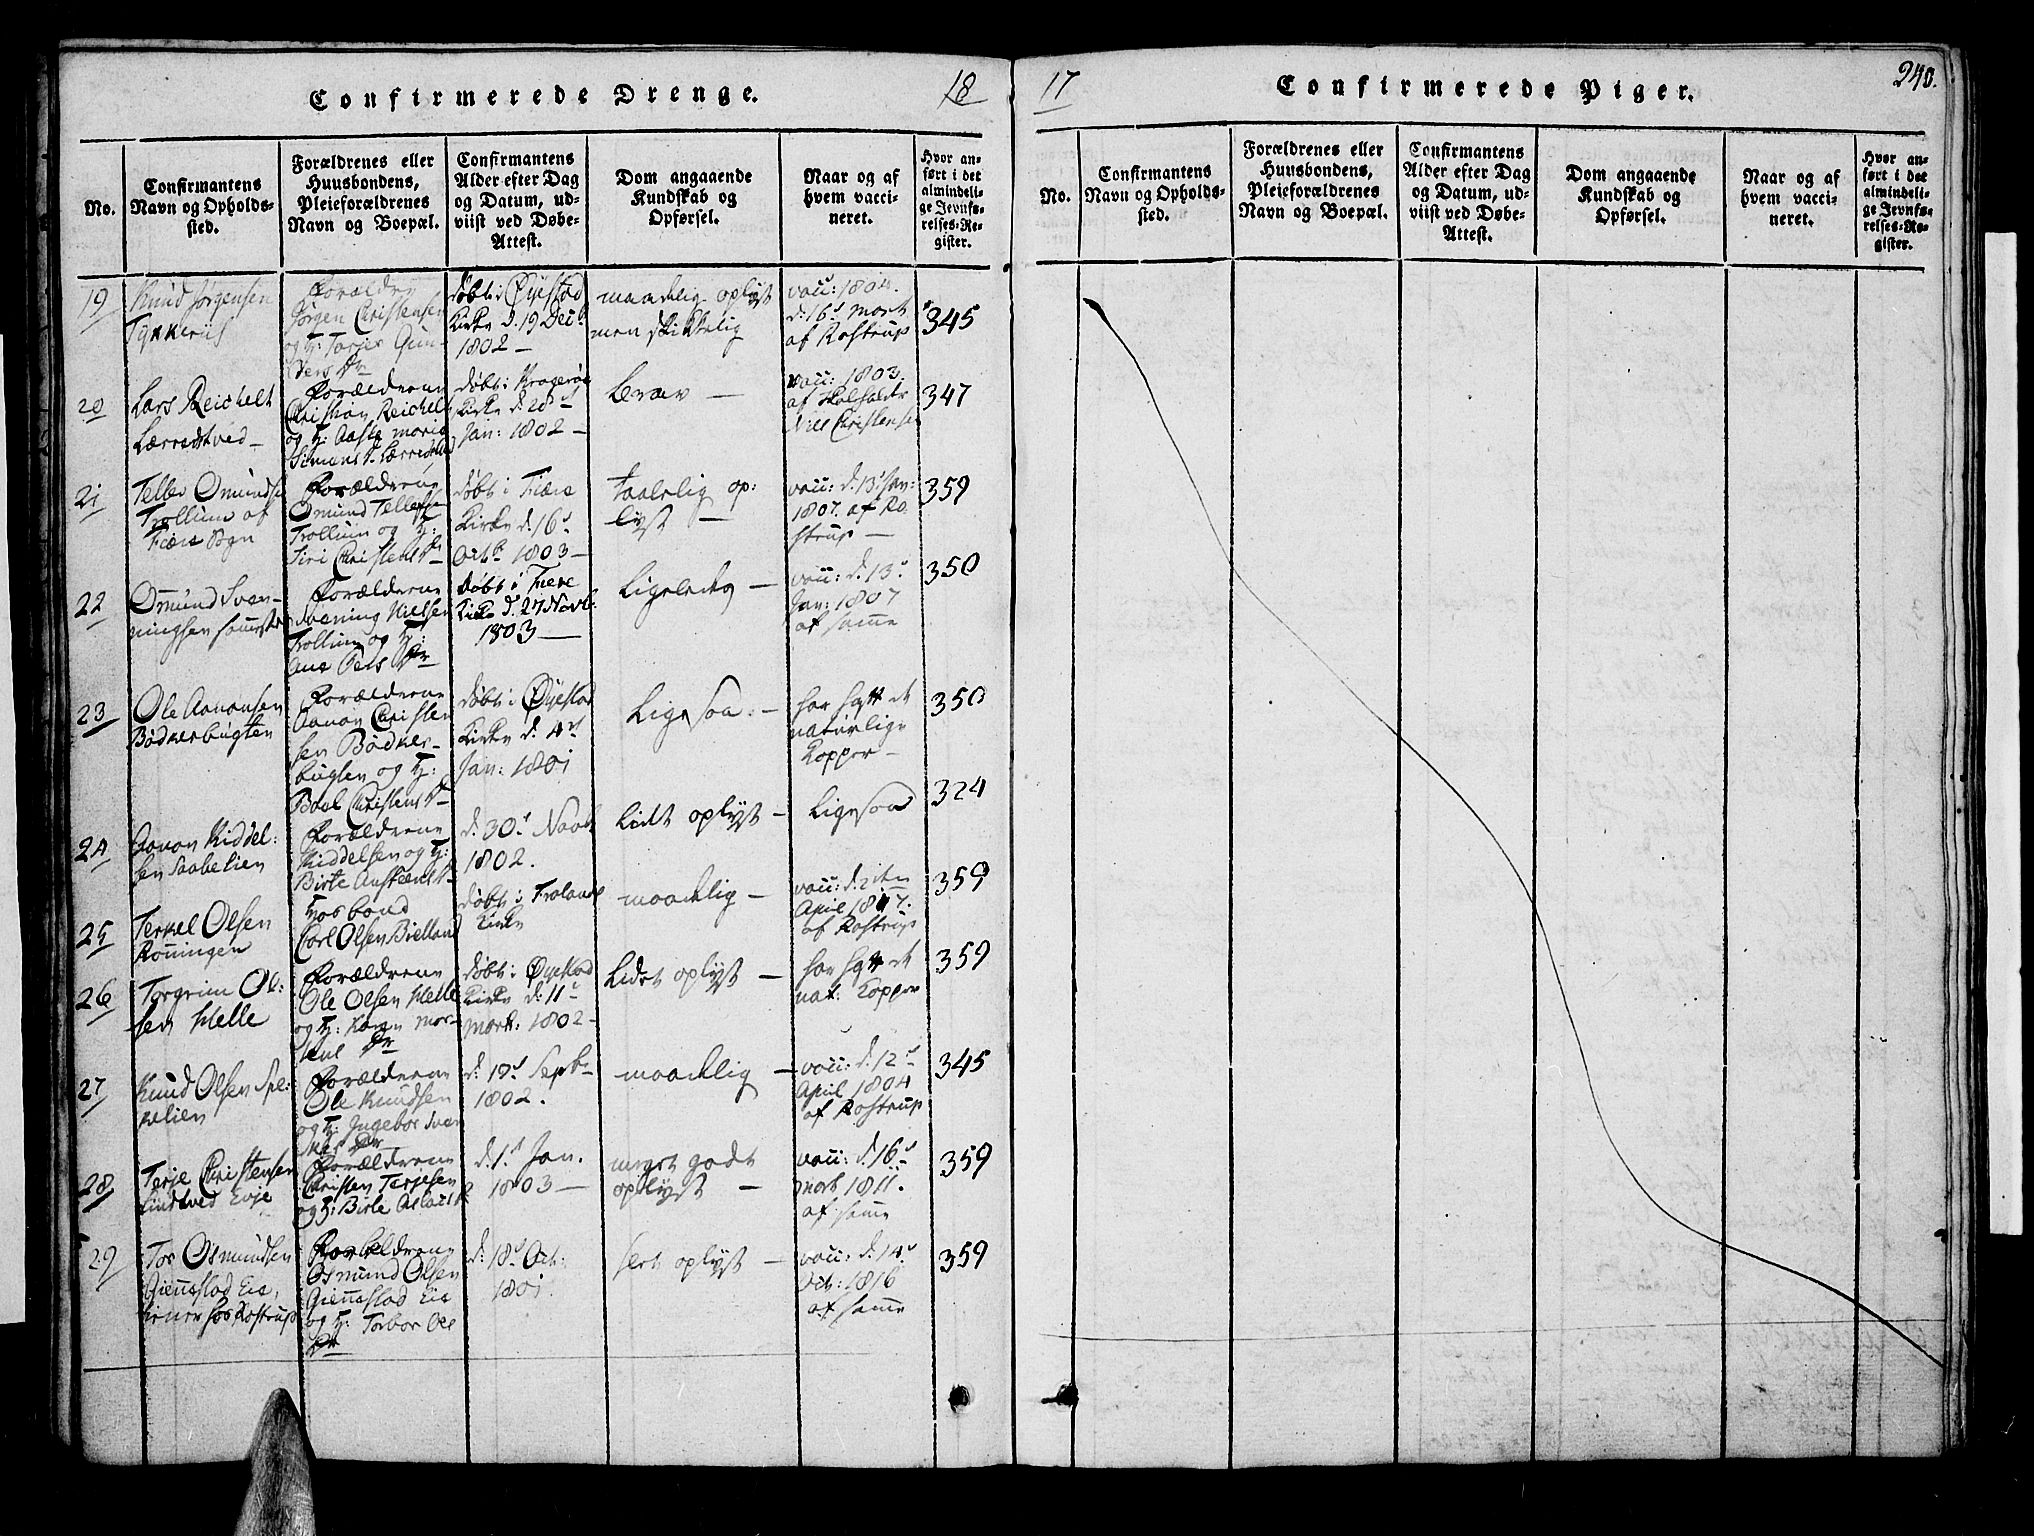 Confirmerede Drenge.
18
No.
Confirmantens
Navn og Opholds-
sted.
Forældrenes eller
Huusbondens,
Pleieforældrenes
Navn og Boepæl.
Confirmantens
Alder efter Dag
og Datum, ud-
viist ved Døbe-
Attest.
Dom angaaende
Kundskab og
Opførsel.
Naar og af
hvem vacci-
neret.
Hvor an-
ført i det
almindeli-
ge Jevnfø-
relses-Re-
gister.
19
Knud Jørgensen
Forældre
Jørgen Christensen
og H: Torjer Gun-
ders Dr
døbt i Øyestad
Kirke d. 19 Decb
1802 —
maadelig oplyst
men skikkelig
vacc: 1804.
d. 16d Mart
af Rostrup
345
20
Lars Reichelt
Lærrestved —
Forældrene
Christian Reichelt
og H: Aaste Maria
døbt i Kragerøe
Kirke d. 20d
Jan: 1802 —
brav —
vacc: 1803.
af
Niels Christensen
347
21
Tellev Omunds
Trollum af
Fiære Sogn
Forældrene
Omund Tellefsen
Trollum og H:
Siri Christens Dr
døbt i Fiære
Kirke d. 16d
Octb 1803 —
taalelig op:
lyst —
vacc: d. 13d Jan:
1807. af Ro
strup —
359
22
Omund Sven-
ningsen
Forældrene
Svening Nielsen
Trollum og H:
Ane Pers Dr
døbt i Fiere
Kirke d. 27 Novb:
1803 —
Ligeledes —
vacc: d. 13d
Jan: 1807
af samme
350
23
Ole Aanonsen
Bødkerbugten
Forældrene
Aanon Christen
sen Bødker-
bugten og H:
Boel Christens Dr
døbt i Øyestad
Kirke d. 4d
Jan: 1801
Ligesaa: —
har havt de
naturlige
Kopper —
350
24
Aanon Kiddel-
sen Saabelien
Forældrene
Kiddelsen og H:
Birte
d. 30d Novb
1802.
Lidt oplyst —
Ligesaa
324
25
Terkel Olsen
Rønningen
Hosbond
Carl Olsen Bielland
døbt i Frolands
Kirke
maadelig —
April
af Rostrup
359
26
Torgrim Ol:
sen Helle
Forældrene
Ole Olsen Helle
og H: Karen Mor-
tens Dr
døbt i Øyestad
Kirke d: 11d
Mart: 1802 —
Lidet oplyst —
har havt de
nat: Kopper
359
27
Knud Olsen
Forældrene
Ole Knudsen
og H: Ingebor Sven
kes Dr
d: 19d Septbr
1802.
maadelig —
vacc: d. 12d
April 1804
af Rostrup
345
28
Terje Christensen
Lindtved Eie
Forældrene
Christen Terjesen
og H: Birte
d: 1d Jan.
1803 —
meget godt
oplyst —
vacc: d. 16d
Mart 1811.
af samme
359
29
Tor Osmundsen
Giennestad Eie,
tiener hos Rostrup
Forældrene
Osmund Olsen
Giennestad Eie
og H: Torbor Ole
Dr
d: 18d Oct:
1801.
slet oplyst —
vacc: d: 14d
Oct: 1816
af samme
359
17
Confirmerede Piger.
240.
No.
Confirmantens
Navn og Opholds-
sted.
Forældrenes eller
Huusbondens,
Pleieforældrenes
Navn og Boepæl.
Confirmantens
Alder efter Dag
og Datum, ud-
viist ved Døbe-
Attest.
Dom angaaende
Kundskab og
Opførsel.
Naar og af
hvem vacci-
neret.
Hvor an-
ført i det
almindeli-
ge Jevnfø-
relses-Re-
gister.